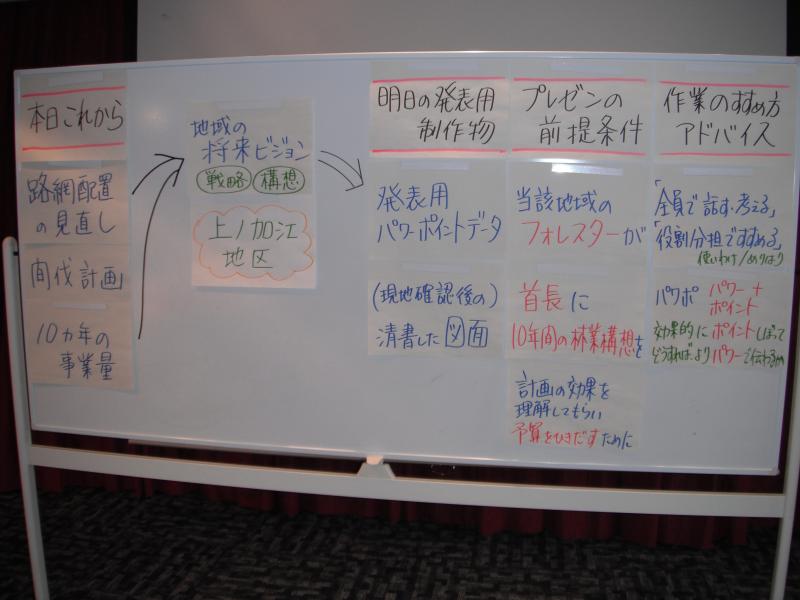 本日これから
路網配置
の見直し
間伐計画
10ヵ年の
事業量
地域の
将来ビジョン
戦略 構想
上ノ加江
地区
明日の発表用
制作物
発表用
パワーポイントデータ
(現地確認後の)
清書した図面
プレゼンの
前提条件
当該地域の
フォレスターが
首長に
10年間の林業構想を
計画の効果を
理解してもらい
予算をひきだすために
作業のすすめ方
アドバイス
「全員で話す・考える」
「役割分担ですすめる」
使いわけ/めりはり
パワポ パワー+
ポイント
効果的に ポイントしぼって
どうすれば より パワーで伝わるか